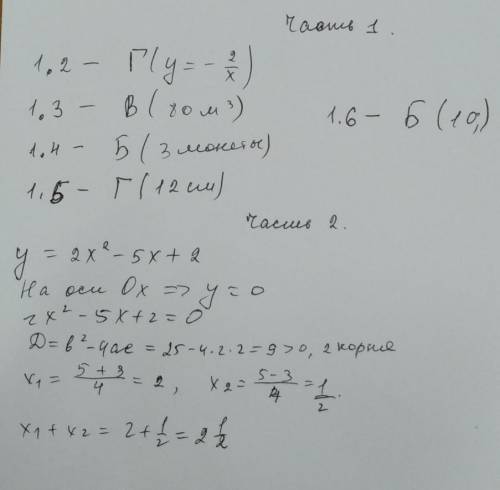 Часть 1.
1.2 – Г (y = - 2/x)
1.3 – В (80 м³)
1.4 – Б (3 монеты)
1.5 – Г (12 см)
1.6 – Б (10)
Часть 2.
y = 2x² - 5x + 2
На оси Ox => y = 0
2x² - 5x + 2 = 0
D = b² - 4ac = 25 - 4·2·2 = 9 > 0, 2 корня
x₁ = 5+3/4 = 2, x₂ = 5-3/4 = 1/2.
x₁ + x₂ = 2 + 1/2 = 2 1/2